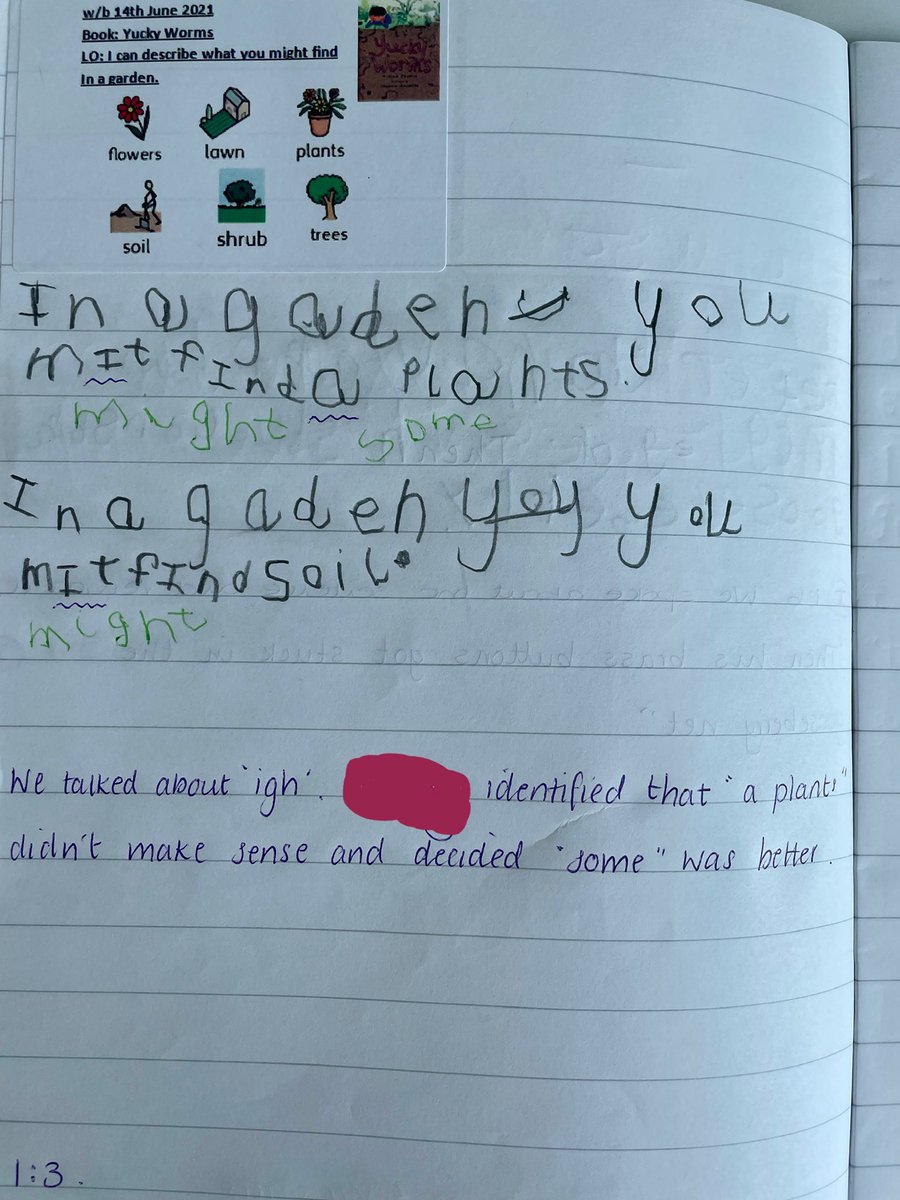 w/b 14th June 2021
Book: Yucky Worms
LO: I can describe what you might find
In a garden.
Yucky
Worms
flowers lawn plants
soil shrub trees
In a gaden you
mIt fInd a plants.
might some
In a gaden yoy you
mIt fInd soil.
might
We talked about "igh". identified that "a plants"
didn't make sense and decided "some" was better.
1:3.